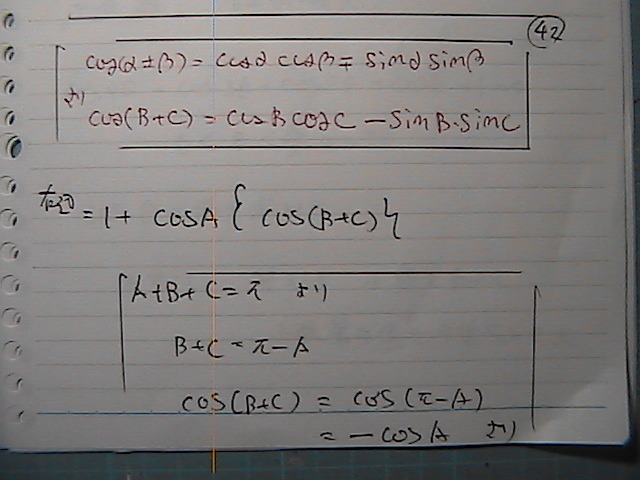 42
cos(α±β) = cosα cosβ∓ sinα sinβ
より
cos(B+C) = cosB cosC − sinB·sinC
= 1 + cosA { cos(B+C) }
A+B+C=π より
B+C = π−A
cos(B+C) = cos(π−A)
= −cosA より